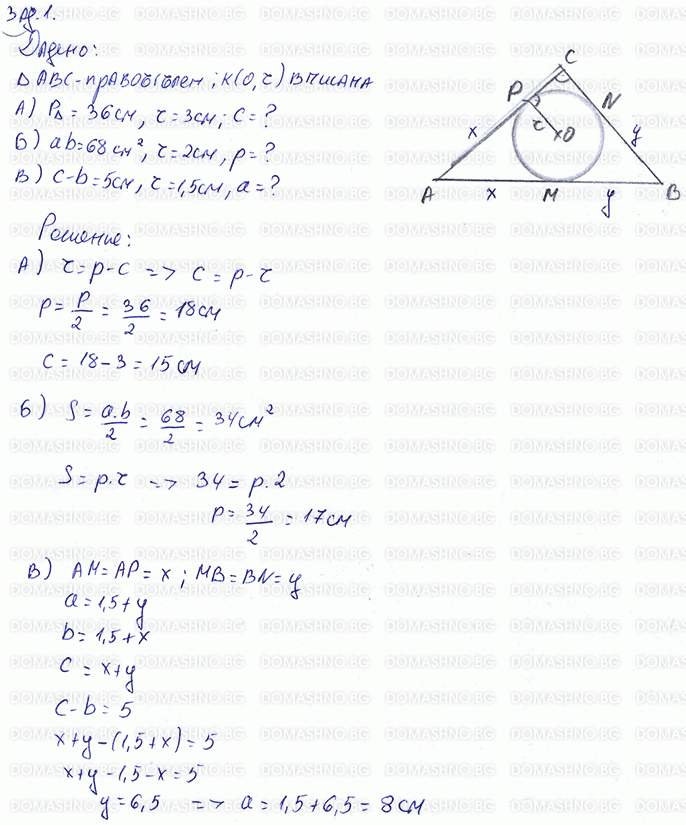 Зад.1.
Дадено:
Δ ABC - правоъгълен; k(O, r) вписана
А) P△ = 36 см, r = 3 см; c = ?
Б) ab = 68 см², r = 2 см, p = ?
В) c - b = 5 см, r = 1,5 см, a = ?
C
P
N
x
r
O
y
A
x
M
y
B
Решение:
А) r = p - c => c = p - r
p = P/2 = 36/2 = 18 см
c = 18 - 3 = 15 см
Б) S = a.b/2 = 68/2 = 34 см²
S = p.r => 34 = p.2
p = 34/2 = 17 см
В) AM = AP = x ; MB = BN = y
a = 1,5 + y
b = 1,5 + x
c = x + y
c - b = 5
x + y - (1,5 + x) = 5
x + y - 1,5 - x = 5
y = 6,5 => a = 1,5 + 6,5 = 8 см
DOMASHNO.BG